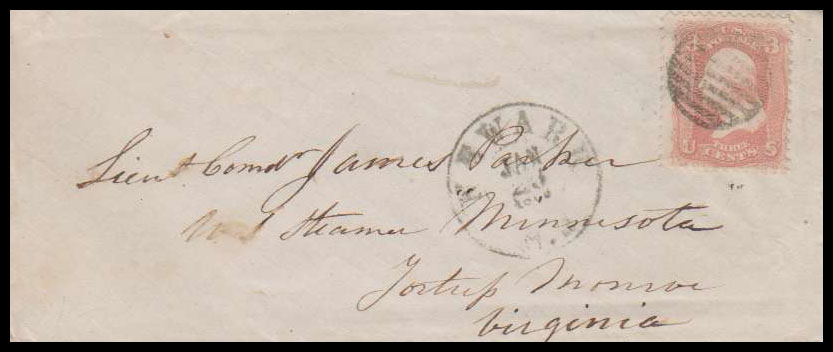 3 U.S. 3
POSTAGE
U THREE S
CENTS
NEWARK
JUN
N.J.
Lieut Comdr James Parker
U S Steamer Minnesota
Fortress Monroe
Virginia